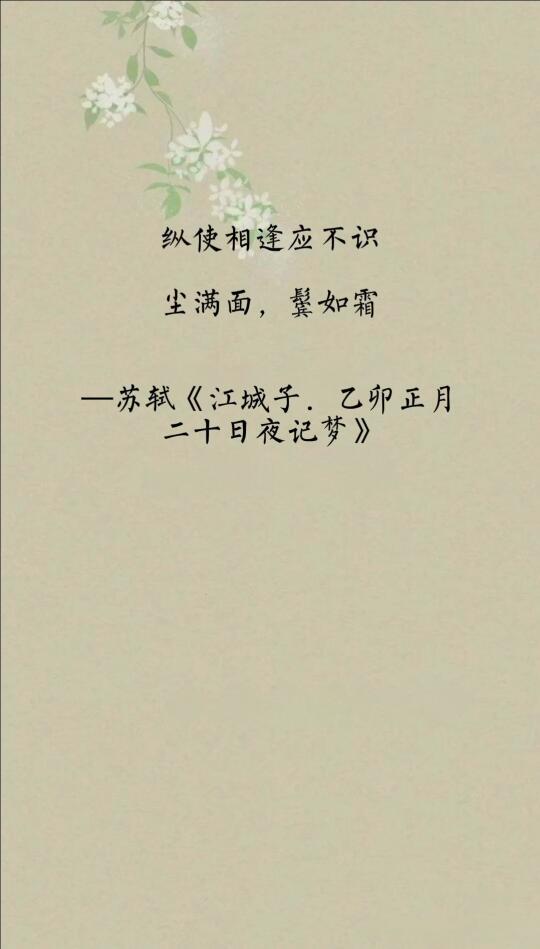 纵使相逢应不识
尘满面，鬓如霜
—苏轼《江城子．乙卯正月
二十日夜记梦》